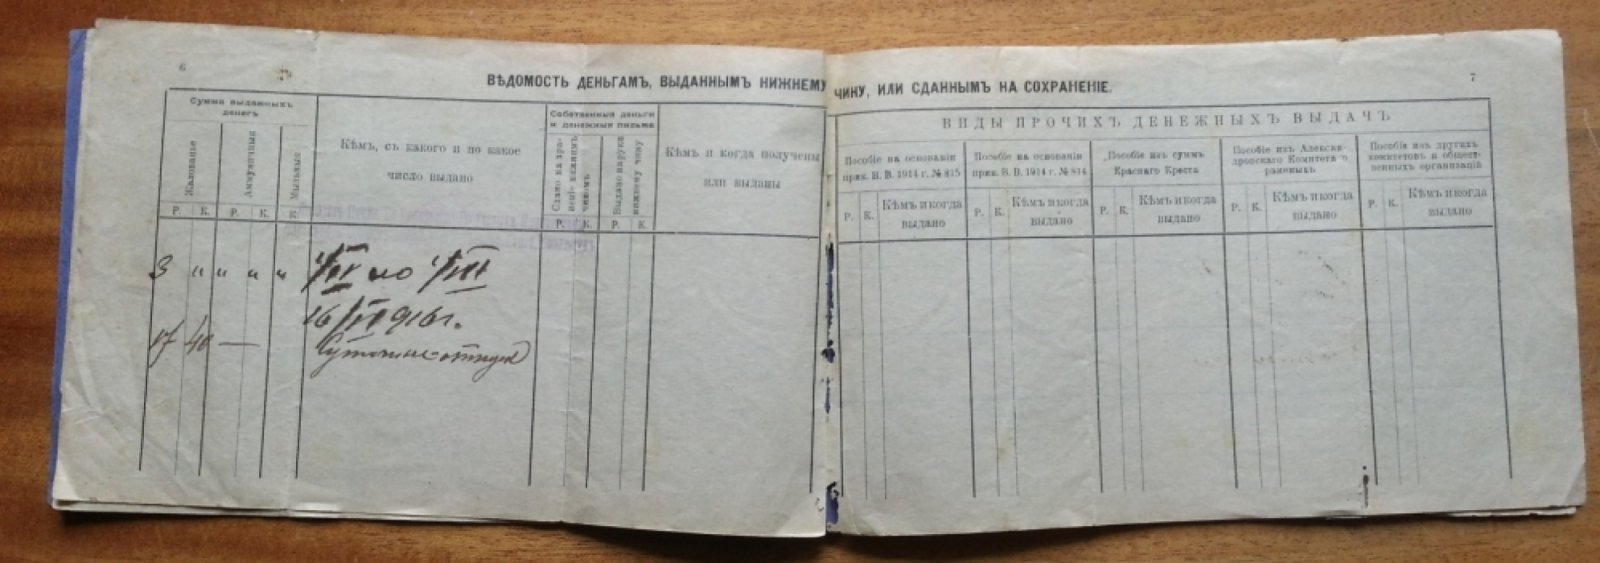 6
7
ВѢДОМОСТЬ ДЕНЬГАМЪ, ВЫДАННЫМЪ НИЖНЕМУ ЧИНУ, ИЛИ СДАННЫМЪ НА СОХРАНЕНІЕ.
Сумма выданныхъ
денегъ
Жалованье
Аммуничныя
Мыльныя
Р. К. Р. К. К.
Кѣмъ, съ какого и по какое
число выдано
Собственныя деньги
и денежныя письма
Сдано на хра-
неніе нижнимъ
чиномъ
Выдано на руки
нижнему чину
Р. К. Р. К.
Кѣмъ и когда получены
или выданы
ВИДЫ ПРОЧИХЪ ДЕНЕЖНЫХЪ ВЫДАЧЪ
Пособіе на основаніи
прик. В. В. 1914 г. № 815
Р. К. Кѣмъ и когда
выдано
Пособіе на основаніи
прик. В. В. 1914 г. № 814
Р. К. Кѣмъ и когда
выдано
Пособіе изъ суммъ
Краснаго Креста
Р. К. Кѣмъ и когда
выдано
Пособіе изъ Алексан-
дровскаго Комитета о
раненыхъ
Р. К. Кѣмъ и когда
выдано
Пособіе изъ другихъ
комитетовъ и общест-
венныхъ организацій
Р. К. Кѣмъ и когда
выдано
3 " " " " по
16/ 916 г.
17 40 — Суточные